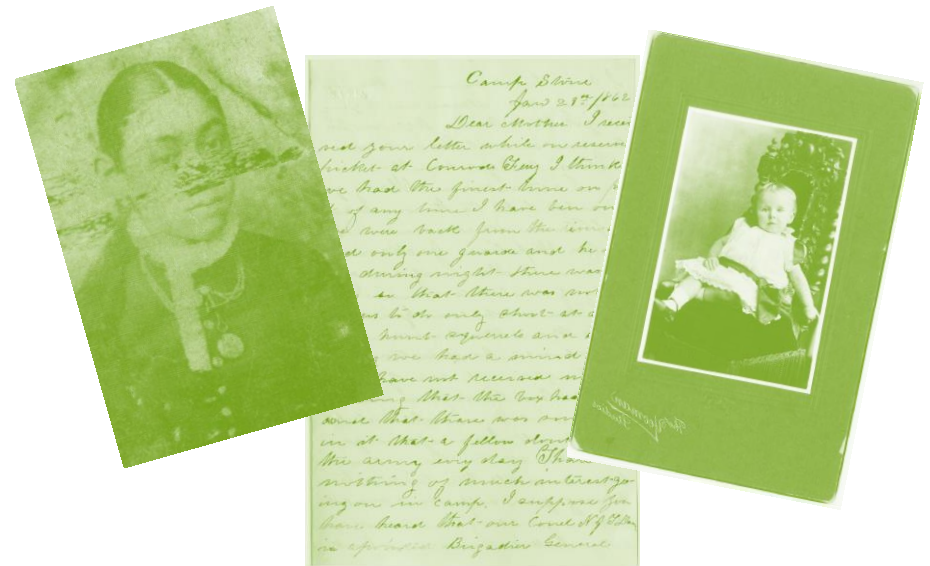 Camp Stone
Jan 28th 1862
Dear Mother I recei
ved your letter while on reserve
picket at Conrads Fery I think
we had the finest time on
of any time I have ben on
were back from the
d only one guarde and he
during night there was
so that there was not
us to do only shoot at a
hunt squirels and
we had a mind
have not received
ing that the box had
and that there was
in it that a fellow dont
the army evry day Thare
nothing of much interest go
ing on in camp. I suppose you
have heard that our Conel N J T Dana
is apointed Brigadier General
Yeoman
Studios